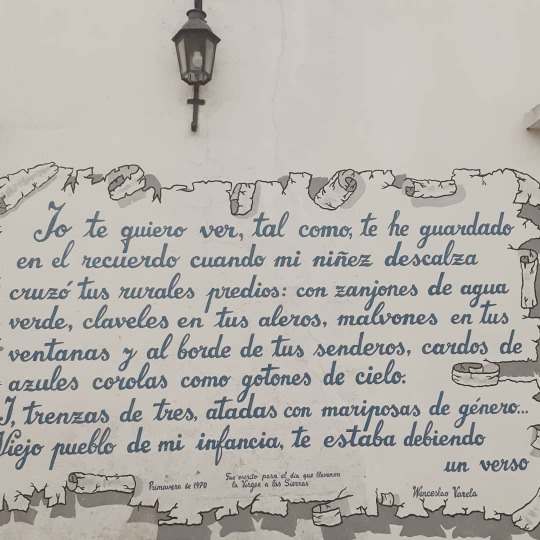 Yo te quiero ver, tal como, te he guardado
en el recuerdo cuando mi niñez descalza
cruzó tus rurales predios: con zanjones de agua
verde, claveles en tus aleros, malvones en tus
ventanas y al borde de tus senderos, cardos de
azules corolas como gotones de cielo.
Y, trenzas de tres, atadas con mariposas de género...
Viejo pueblo de mi infancia, te estaba debiendo
un verso
Primavera de 1970
Fue escrito para el día que llevaron
la Virgen a las Sierras
Wenceslao Varela